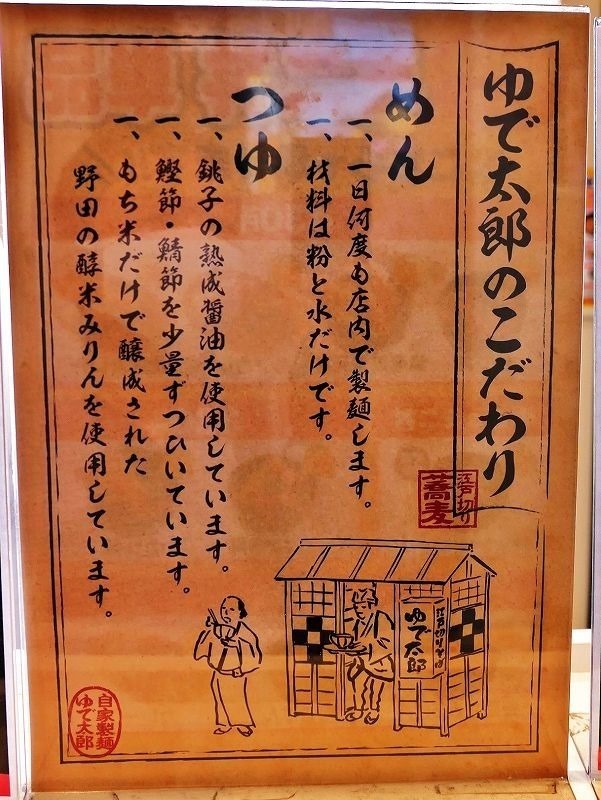 ゆで太郎のこだわり
江戸切り
蕎麦
めん
一、一日何度も店内で製麺します。
一、材料は粉と水だけです。
つゆ
一、銚子の熟成醤油を使用しています。
一、鰹節・鯖節を少量ずつひいています。
一、もち米だけで醸成された
野田の醇米みりんを使用しています。
江戸切りそば
ゆで太郎
自家製麺
ゆで太郎